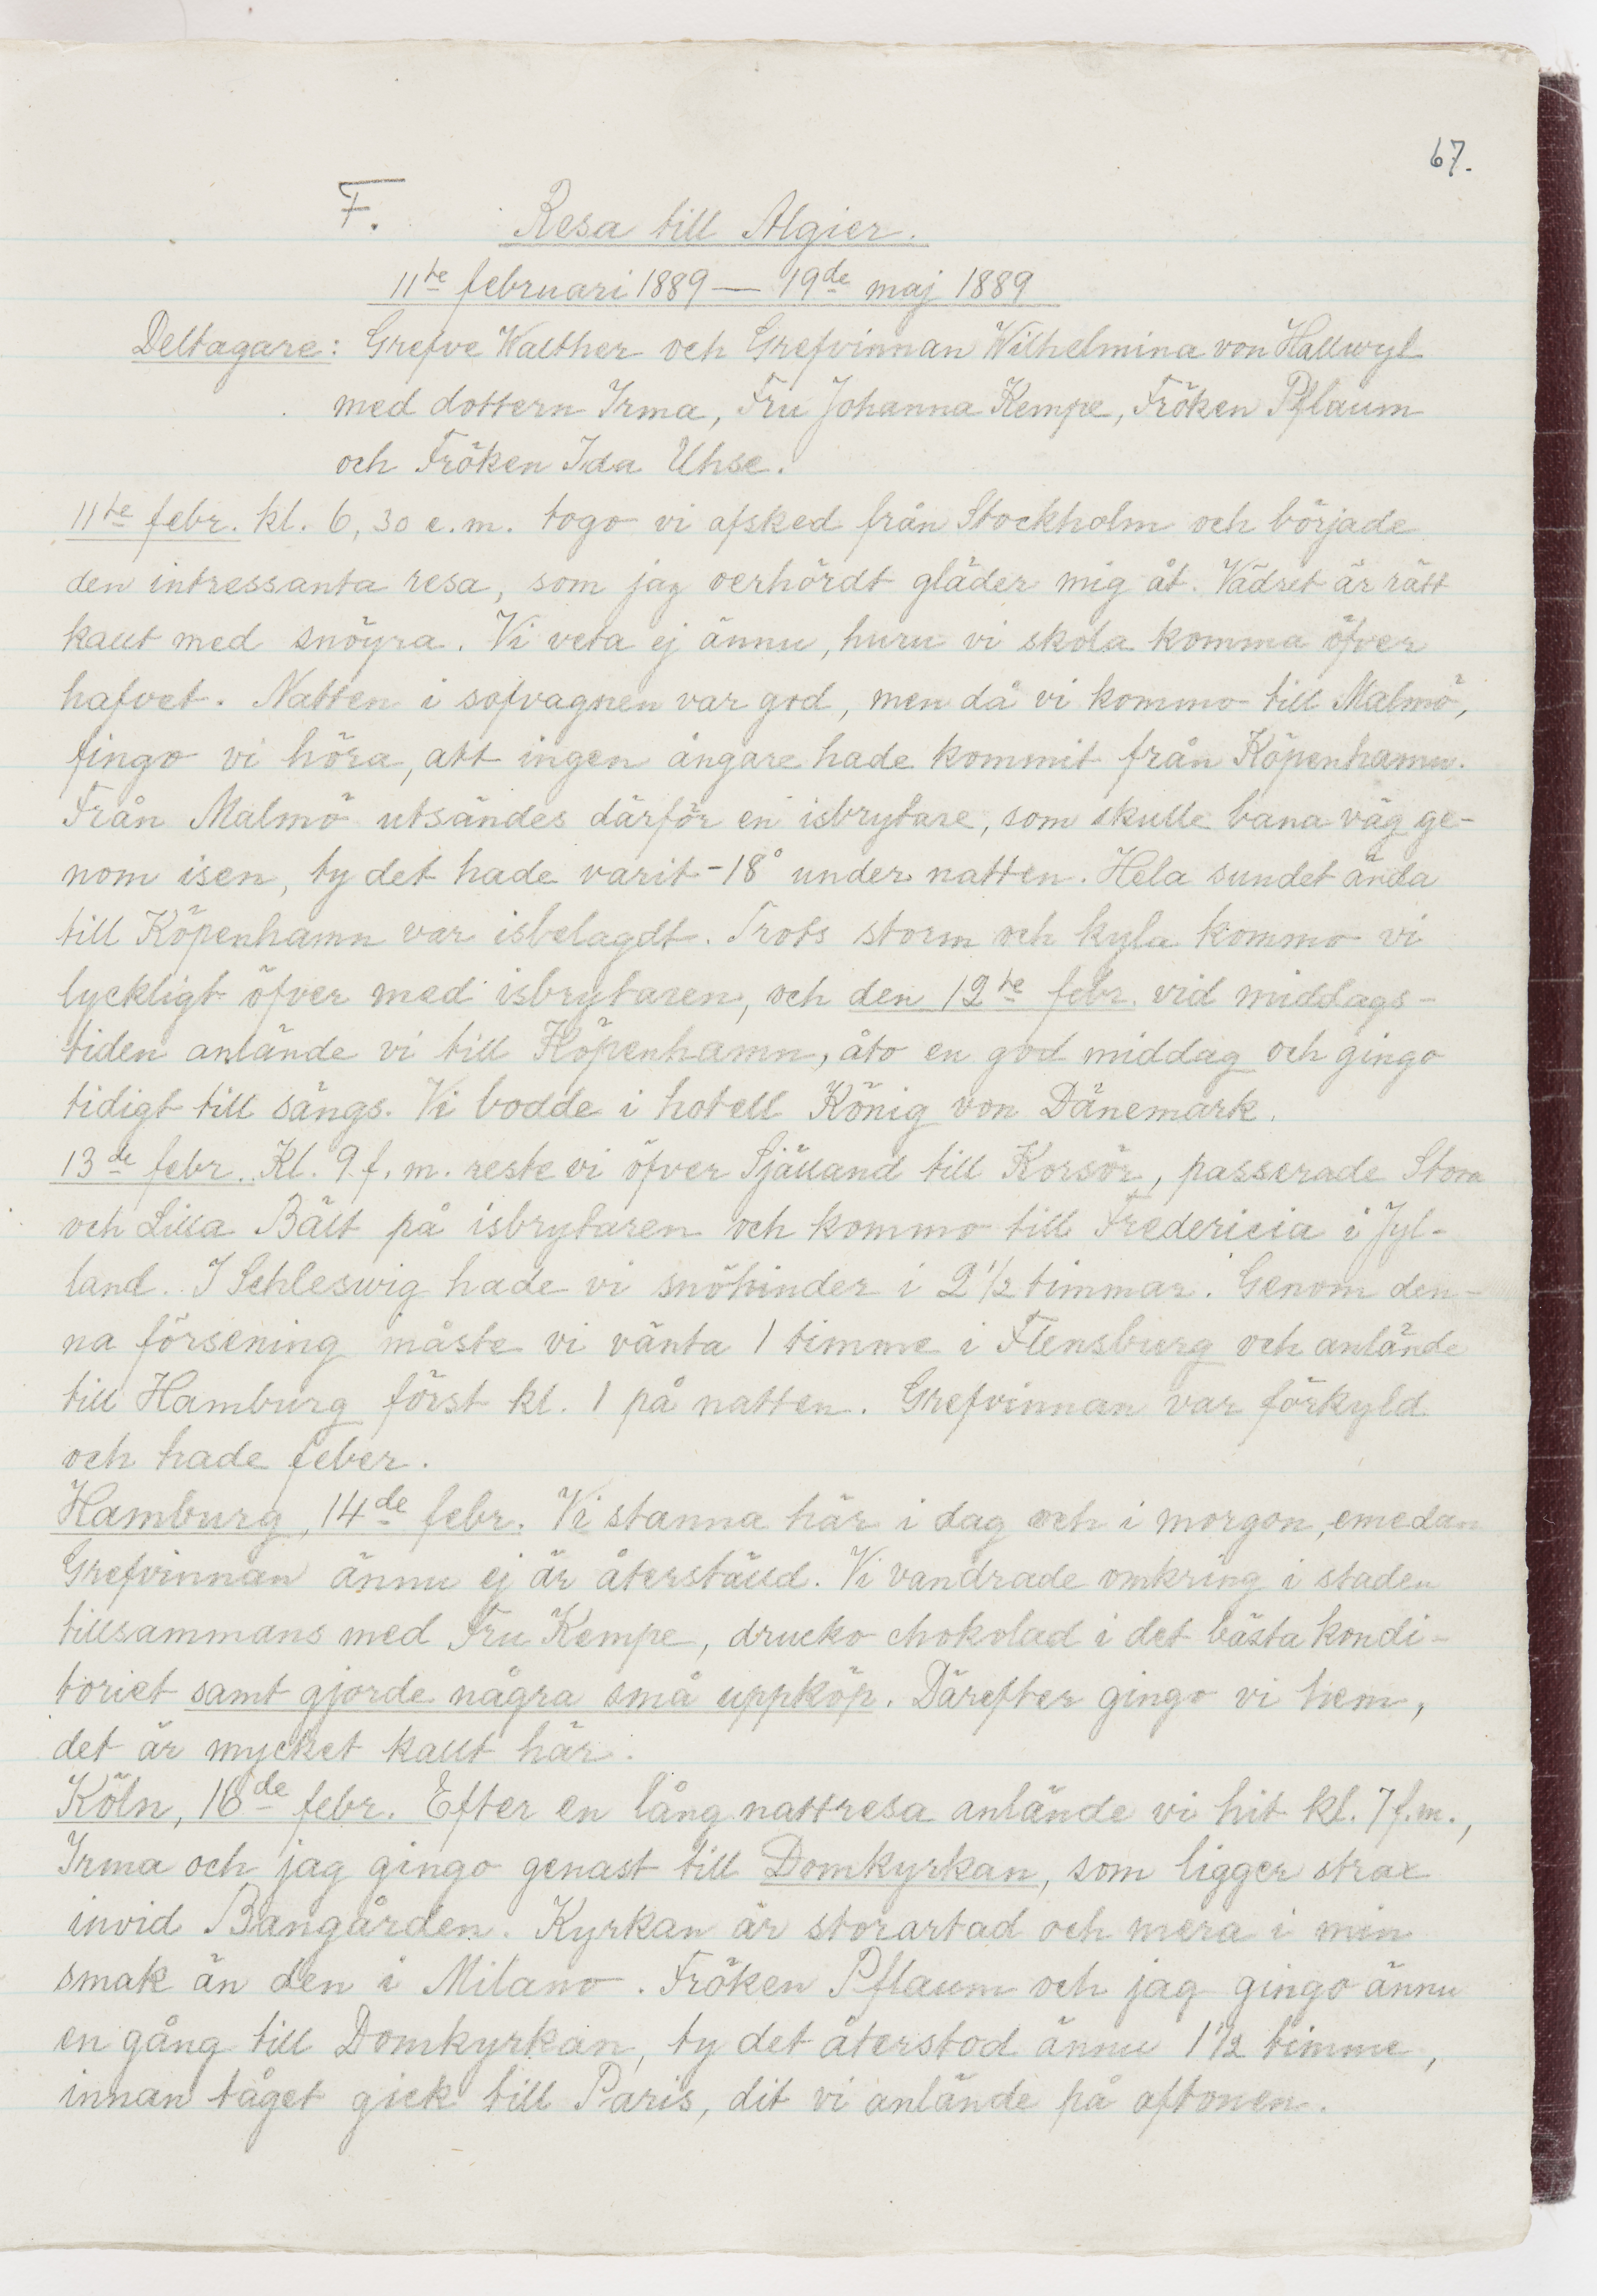 67.
F. Resa till Algier.
11te februari 1889 — 19de maj 1889
Deltagare: Grefve Walther och Grefvinnan Wilhelmina von Hallwyl
med dottern Irma, Fru Johanna Kempe, Fröken Pflaum
och Fröken Ida Uhse.
11te febr. kl. 6,30 e.m. togo vi afsked från Stockholm och började
den intressanta resa, som jag oerhördt gläder mig åt. Vädret är rätt
kallt med snöyra. Vi veta ej ännu, huru vi skola komma öfver
hafvet. Natten i sofvagnen var god, men då vi kommo till Malmö,
fingo vi höra, att ingen ångare hade kommit från Köpenhamn.
Från Malmö utsändes därför en isbrytare, som skulle bana väg ge-
nom isen, ty det hade varit -18° under natten. Hela sundet ända
till Köpenhamn var isbelagdt. Trots storm och kyla kommo vi
lyckligt öfver med isbrytaren, och den 12te febr. vid middags-
tiden anlände vi till Köpenhamn, åto en god middag och gingo
tidigt till sängs. Vi bodde i hotell König von Dänemark.
13de febr. Kl. 9 f.m. reste vi öfver Själland till Korsör, passerade Stora
och Lilla Bält på isbrytaren och kommo till Fredericia i Jyl-
land. I Schleswig hade vi snöhinder i 2 1/2 timmar. Genom den-
na försening måste vi vänta 1 timme i Flensburg och anlände
till Hamburg först kl. 1 på natten. Grefvinnan var förkyld
och hade feber.
Hamburg, 14de febr. Vi stanna här i dag och i morgon, emedan
Grefvinnan ännu ej är återställd. Vi vandrade omkring i staden
tillsammans med Fru Kempe, drucko chokolad i det bästa kondi-
toriet samt gjorde några små uppköp. Därefter gingo vi hem,
det är mycket kallt här.
Köln, 16de febr. Efter en lång nattresa anlände vi hit kl. 7 f.m.,
Irma och jag gingo genast till Domkyrkan, som ligger strax
invid Bangården. Kyrkan är storartad och mera i min
smak än den i Milano. Fröken Pflaum och jag gingo ännu
en gång till Domkyrkan, ty det återstod ännu 1 1/2 timme,
innan tåget gick till Paris, dit vi anlände på aftonen.